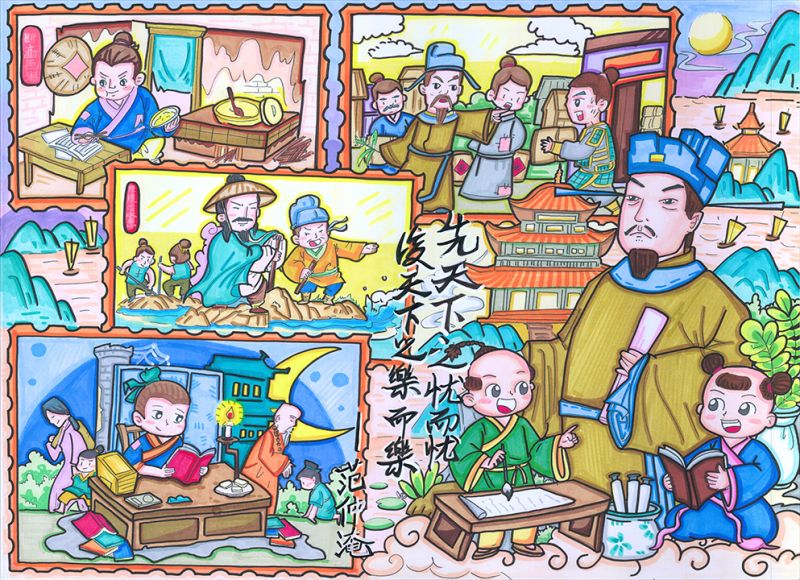 断齑画粥
先天下之忧而忧
後天下之樂而樂
—范仲淹